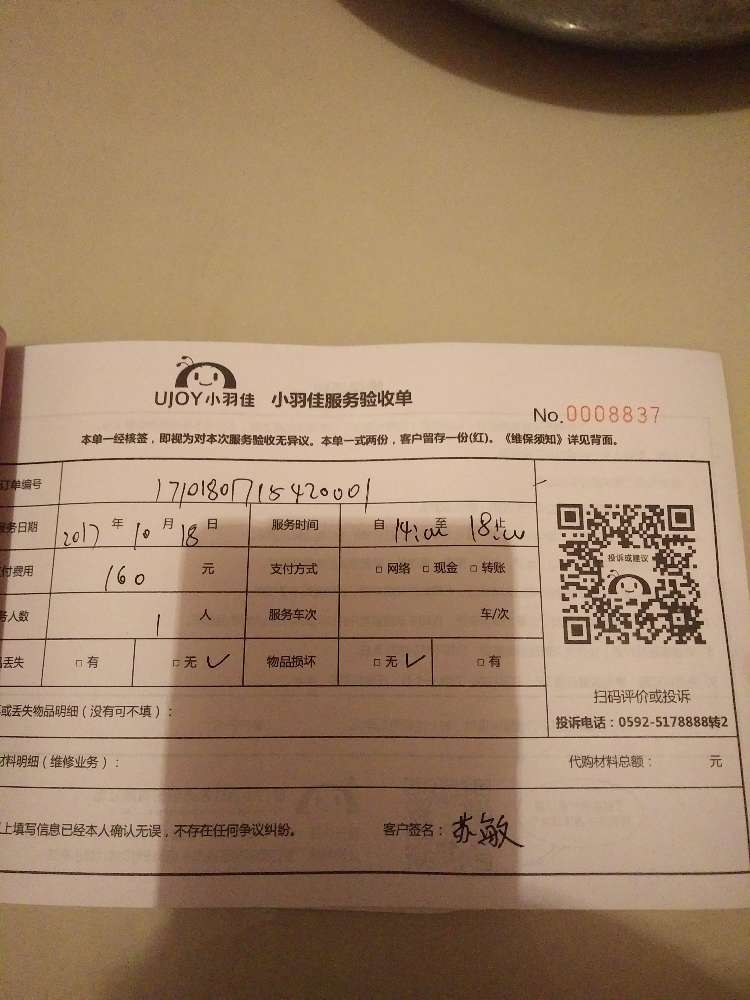 UJOY小羽佳 小羽佳服务验收单
No.0008837
本单一经核签，即视为对本次服务验收无异议。本单一式两份，客户留存一份(红)。《维保须知》详见背面。
订单编号 1710180715420001
服务日期 2017 年 10 月 18 日 服务时间 自 14:00 至 18:00 止
付费用 160 元 支付方式 □ 网络 □ 现金 □ 转账
务人数 1 人 服务车次 车/次
品丢失 □ 有 □ 无 ✓ 物品损坏 □ 无 ✓ □ 有
投诉或建议
扫码评价或投诉
投诉电话：0592-5178888转2
或丢失物品明细（没有可不填）：
材料明细（维修业务）： 代购材料总额： 元
上填写信息已经本人确认无误，不存在任何争议纠纷。 客户签名：苏敏